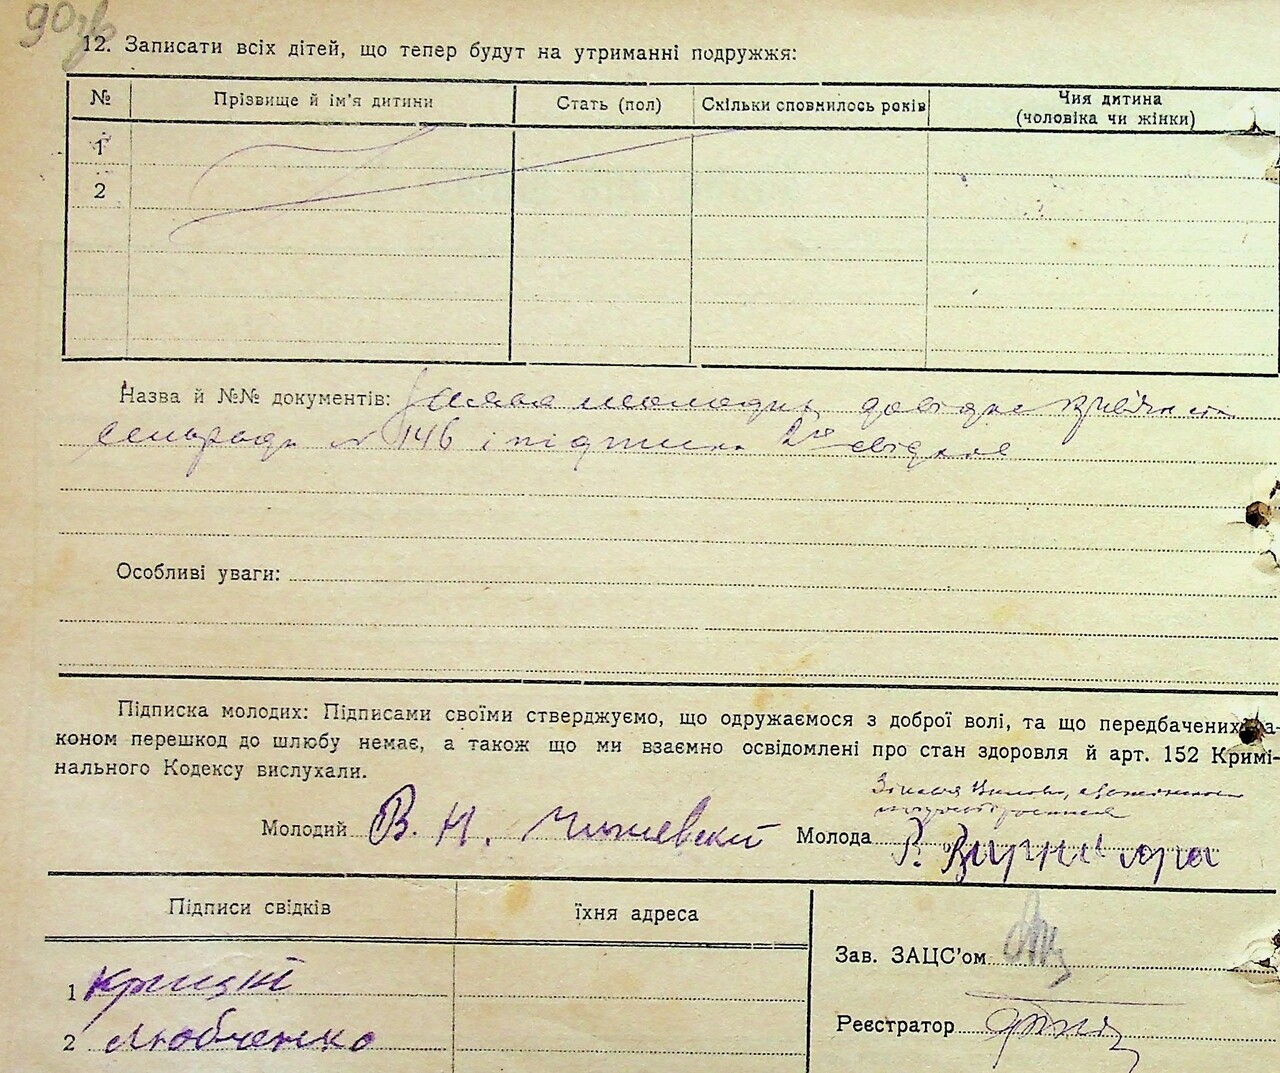 90зв
12. Записати всіх дітей, що тепер будут на утриманні подружжя:
№ Прізвище й ім'я дитини Стать (пол) Скільки сповнилось років Чия дитина (чоловіка чи жінки)
1
2
Назва й №№ документів: Заява молодих, довідка
сельради № 146 і підписка 2х свідков
Особливі уваги:
Підписка молодих: Підписами своїми стверджуємо, що одружаємося з доброї волі, та що передбачених за-
коном перешкод до шлюбу немає, а також що ми взаємно освідомлені про стан здоровля й арт. 152 Кримі-
нального Кодексу вислухали.
Молодий В. Н. Чишевский Молода
Підписи свідків їхня адреса
Зав. ЗАЦС'ом
1 Крицкий
Реєстратор
2 Любченко